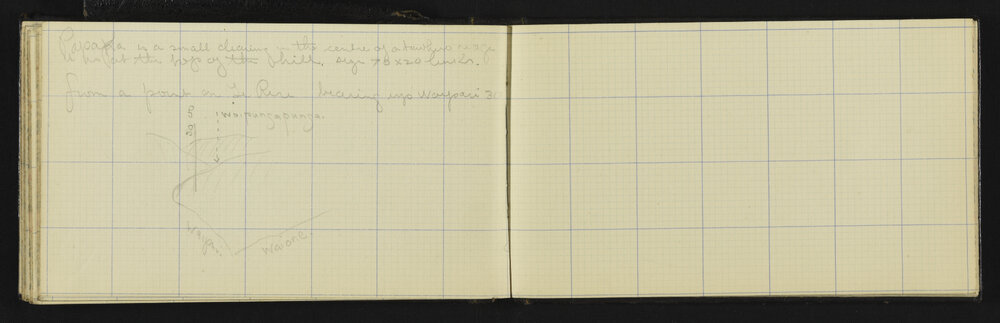 Papapa is a small clearing in the centre of a
at the top of the hill. size 78 x 20 links.
from a point on Te Rere bearing up Waipari 30
30
Waipungapunga.
Waipa.
Waione.